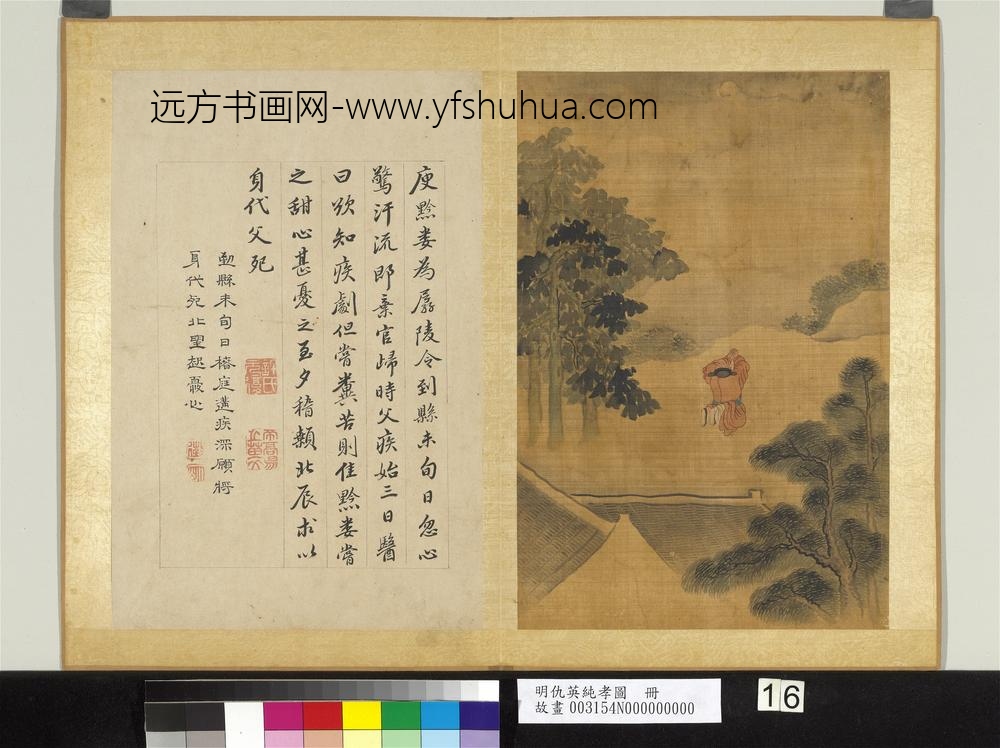 远方书画网-www.yfshuhua.com
庾黔婁為孱陵令到縣未旬日忽心
驚汗流即棄官歸時父疾始三日醫
曰欲知疾劇但嘗糞苦則佳黔婁嘗
之甜心甚憂之至夕稽顙北辰求以
身代父死
到縣未旬日椿庭遘疾深願將
身代死北望起憂心
明仇英純孝圖 冊
故畫 003154N000000000
16